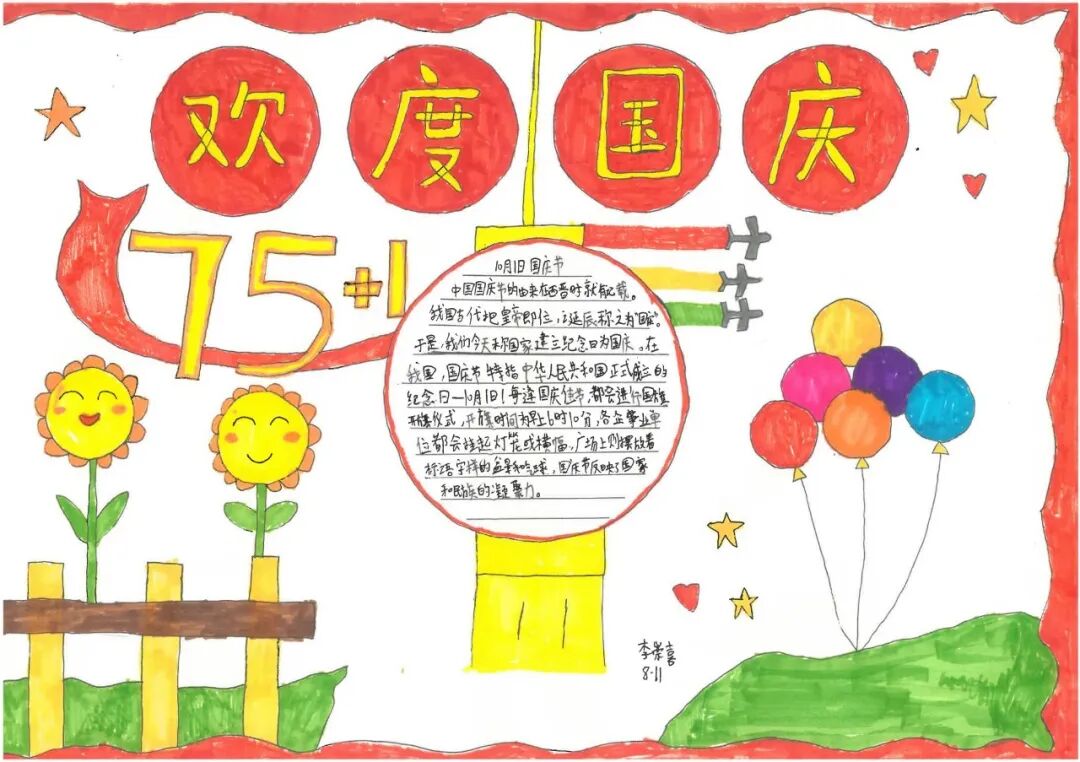 欢度国庆
75+1
10月1日国庆节
中国国庆节的由来在西晋时就有记载。
我国古代把皇帝即位、诞辰称之为“国庆”。
于是,我们今天称国家建立纪念日为国庆。在
我国,国庆节特指中华人民共和国正式成立的
纪念日—10月1日,每逢国庆佳节,都会进行国旗
升旗仪式,升旗时间为早上6时10分,各企事业单
位都会挂起灯笼或横幅,广场上则摆放着
标语字样的盆景和气球,国庆节反映了国家
和民族的凝聚力。
李景喜
8·11